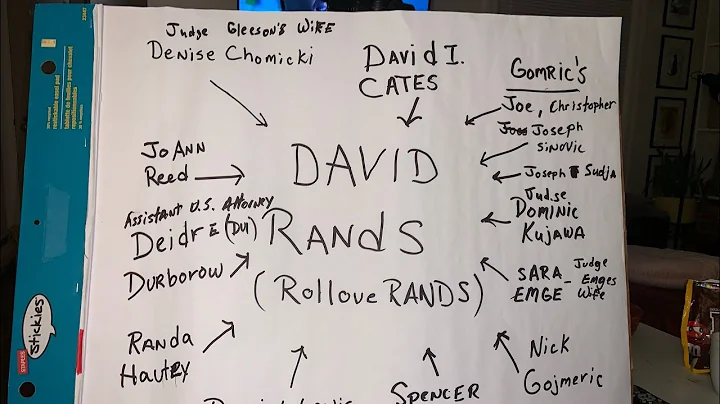 Judge Gleeson's WiFE
Denise Chomicki
DaviD I.
CATES
GOMRIC'S
Joe, Christopher
Joseph
SINOVIC
JOANN
Reed
DAVID
Joseph Sudja
Assistant U.S. Attorney
Deidre (DUI)
Durborow
RANdS
Judge
DOMINIC
KUJAWA
(RolloveRANDS)
SARA
EMGE
- Judge
Emges
Wife
RANDA
Hautly
Nick
Gojmeric
SPENCER
STAPLES
stickies